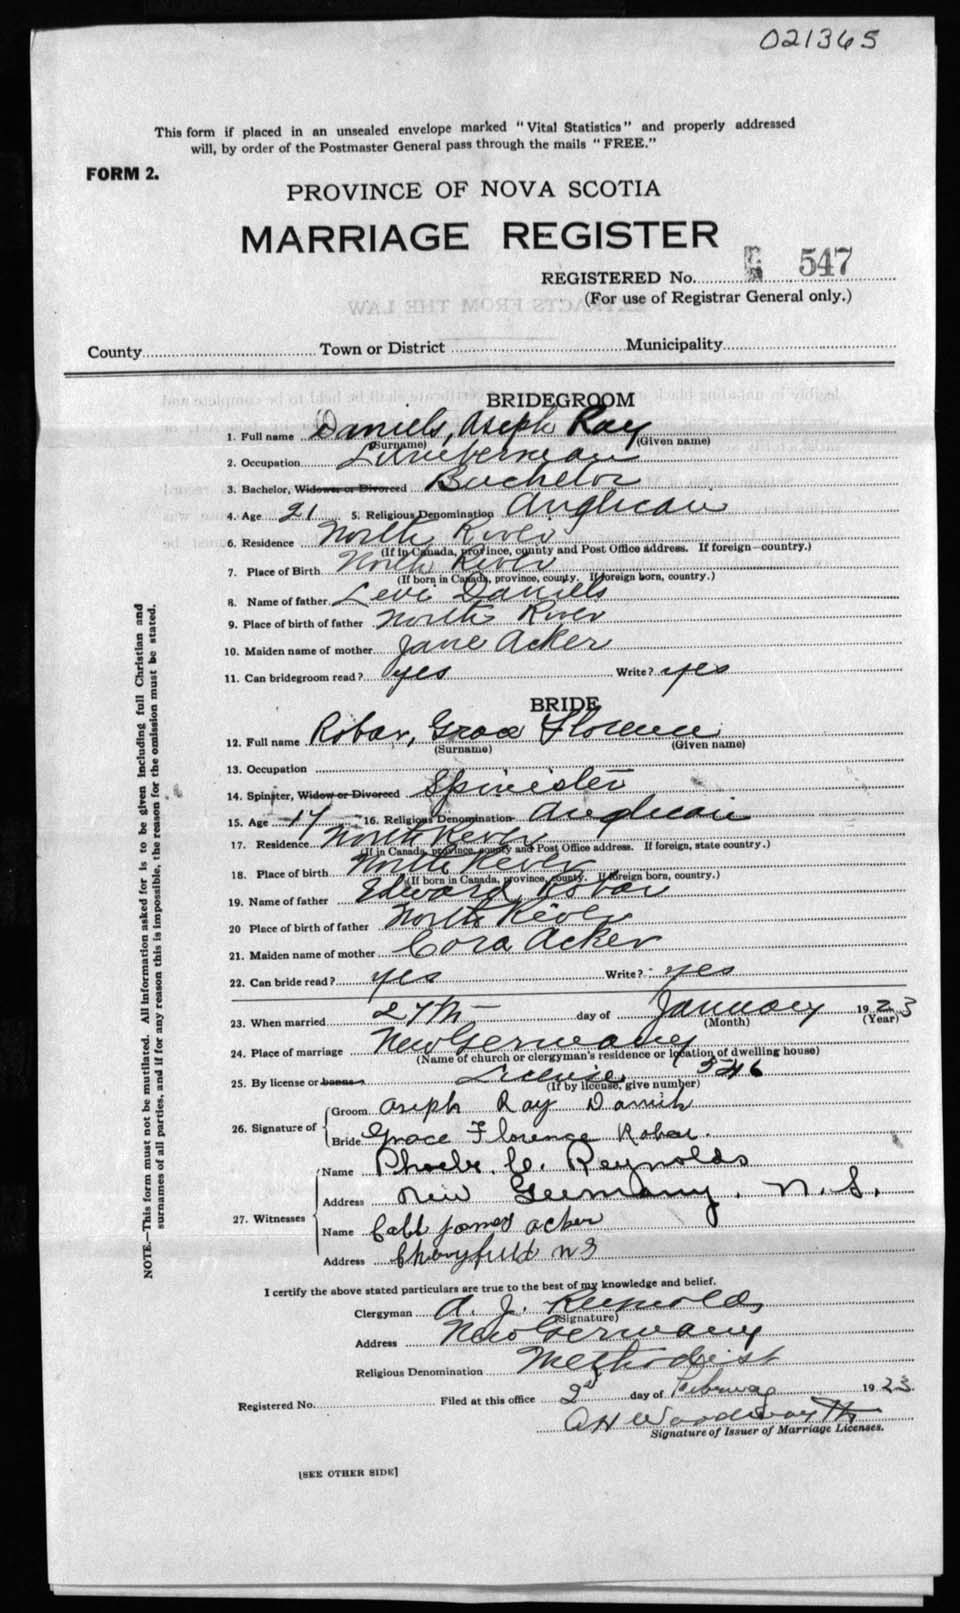 021365
This form if placed in an unsealed envelope marked "Vital Statistics" and properly addressed
will, by order of the Postmaster General pass through the mails "FREE."
FORM 2.
PROVINCE OF NOVA SCOTIA
MARRIAGE REGISTER
REGISTERED No. 547
(For use of Registrar General only.)
County Town or District Municipality
BRIDEGROOM
1. Full name Daniels, Aseph Ray
(Surname) (Given name)
2. Occupation Lumberman
3. Bachelor, Widower or Divorced Bachelor
4. Age 21 5. Religious Denomination Anglican
6. Residence North River
(If in Canada, province, county and Post Office address. If foreign—country.)
7. Place of Birth North River
(If born in Canada, province, county. If foreign born, country.)
8. Name of father Levi Daniels
9. Place of birth of father North River
10. Maiden name of mother Jane Acker
11. Can bridegroom read? yes Write? yes
BRIDE
12. Full name Robar, Grace Florence
(Surname) (Given name)
13. Occupation
14. Spinster, Widow or Divorced Spinister
15. Age 17 16. Religious Denomination Anglican
17. Residence North River
(If in Canada, province, county and Post Office address. If foreign, state country.)
18. Place of birth North River
(If born in Canada, province, county. If foreign born, country.)
19. Name of father Edward Robar
20 Place of birth of father North River
21. Maiden name of mother Cora Acker
22. Can bride read? yes Write? yes
23. When married 27th day of January 1923
(Month) (Year)
24. Place of marriage New Germany
(Name of church or clergyman's residence or location of dwelling house)
25. By license or banns License 5246
(If by license, give number)
26. Signature of Groom Aseph Ray Daniels
Bride Grace Florence Robar.
27. Witnesses Name Phoebe C. Reynolds
Address New Germany, N.S.
Name James Acker
Address Cherryfield NS
I certify the above stated particulars are true to the best of my knowledge and belief.
Clergyman A. J. Reynolds
(Signature)
Address New Germany
Religious Denomination Methodist
Registered No. Filed at this office 2d day of February 1923
A H Woodworth
Signature of Issuer of Marriage Licenses.
[SEE OTHER SIDE]
NOTE.—This form must not be mutilated. All information asked for is to be given including full Christian and
surnames of all parties, and if for any reason this is impossible, the reason for the omission must be stated.